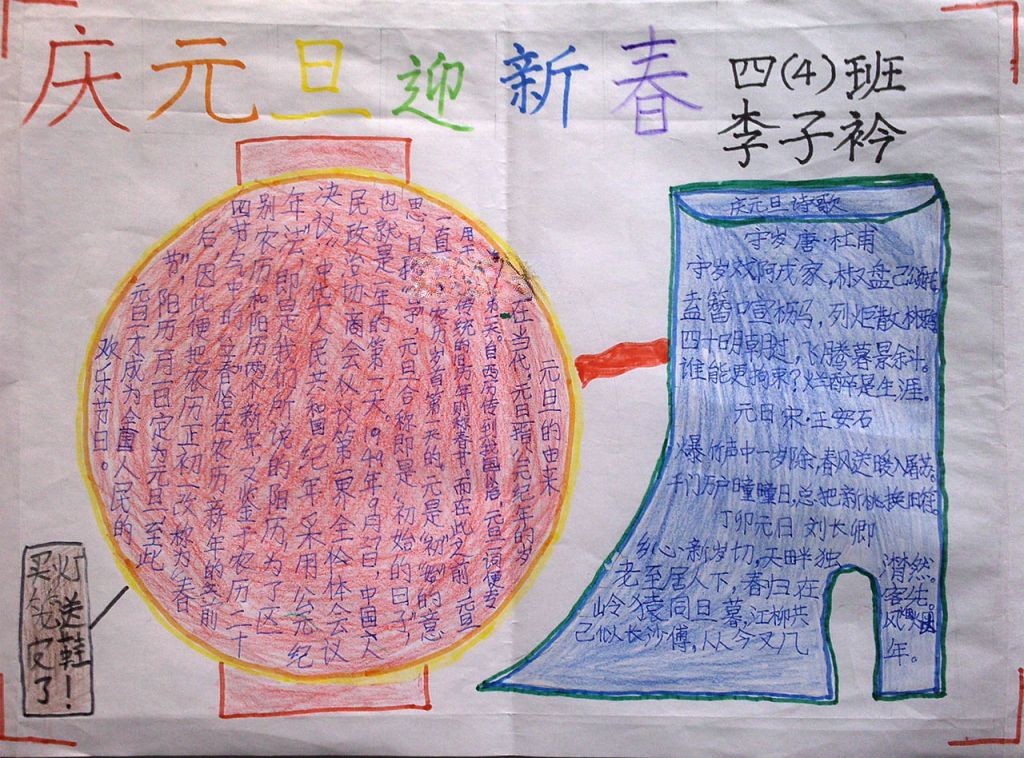 庆元旦迎新春
四(4)班
李子衿
元旦的由来
在当代,元旦指公元纪年的岁
首第一天。自西历传到我国以后,元旦一词便专
用于
传统的阴历年则称春节。而在此之前,元旦
一直
农历岁首第一天的。元是"初""始"的意
思,旦指
予,元旦合称即是"初始的日子",
也就是一年的第一天。1949年9月27日,中国人
民政治协商会议第一届全体会议
决议"中华人民共和国纪年采用公元纪
年法",即是我们所说的阳历,为了区
别农历和阳历两个新年,又鉴于农历二十
四节气中的"立春"恰在农历新年的
前
后,因此便把农历正初一改称为"春
节",阳历一月一日定为元旦,至此
元旦才成为全国人民的
欢乐节日。
庆元旦诗歌
守岁 唐·杜甫
守岁戏阿戎家,椒盘已颂花。
盍簪
枥马,列炬散林鸦。
四十明朝过,飞腾暮景斜。
谁能更拘束?烂醉是生涯。
元日 宋·王安石
爆竹声中一岁除,春风送暖入屠苏。
千门万户曈曈日,总把新桃换旧符。
丁卯元日 刘长卿
乡心新岁切,天畔独潸然。
老至居人下,春归在客先。
岭猿同旦暮,江柳共风烟。
已似长沙傅,从今又几年。
买灯
笼
送鞋!
了